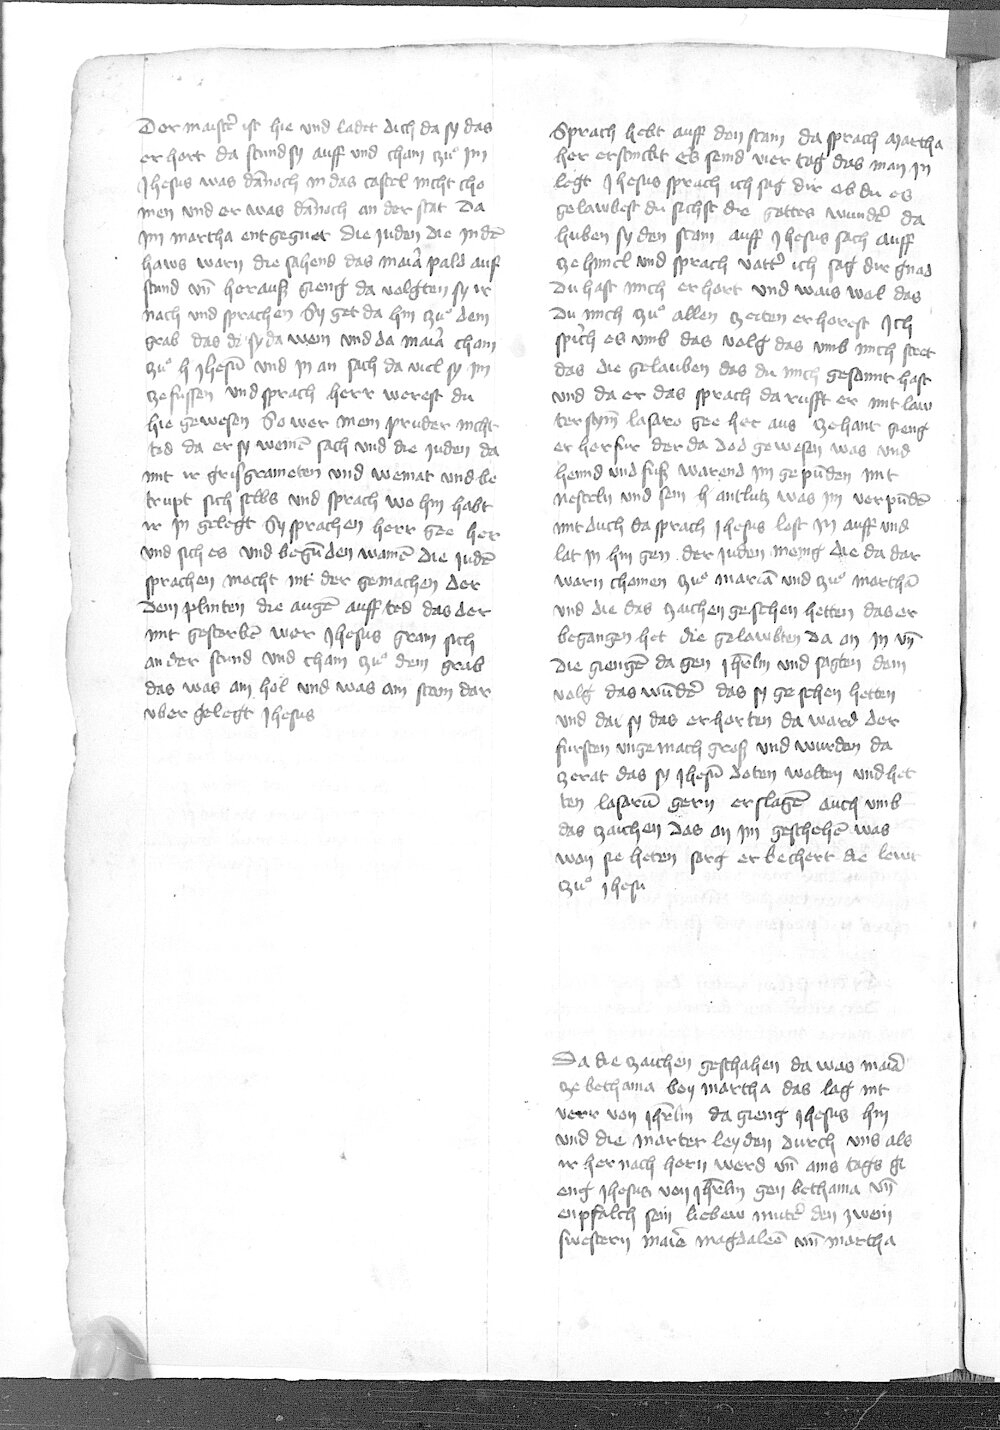 Der maist᷑ ist hie und ladet dich da sy das
er hort da stund sy auff und cham zuͦ im
Jhesus was dān̄och in das castel nicht cho
men und er was dān̄och an der stat Da
im martha entgegnet die juden die in dē
haws warn die sahend das mar̄ia pald auf
stund vn̄ herauß gieng da volgten sy ir
nach und sprachen Sy get da hin zuͦ dem
grab das sy da wein und da mar̄ia cham
zuͦ h Jhesū und in an sach da viel sy im
ze fussen und sprach herr werest du
hie gewesen So wer mein pruder nicht
tod da er sy weinē sach und die juden da
mit ir grisgrameten und weinat und be
trupt sich selbs und sprach wo hin habt
ir in gelegt Sy sprachen herr gee her
und sich es und begūden wainē die judē
sprachen mocht nit der gemachen der
dem plinten die augē auff ted das der
nit gestorbē wer Jhesus gram sich
an der stund und cham zuͦ dem grab
das was ain hol und was ain stein dar
uber gelegt Jhesus
Sprach hebt auff den stain da sprach Martha
her er stinckt es seind vier tag das man in
legt Jhesus sprach ich sag dir ob du es
gelawbest du sichst die gottes wund᷑ da
huben sy den stain auff Jhesus sach auff
ze himel und sprach vatt᷑ ich sag dir gnad
Du hast mich er hort und wais wol das
Du mich zuͦ allen zeiten er horest Ich
sprich es umb das volg das umb mich steet
das die gelauben das du mich gesannt hast
und da er das sprach da rufft er mit law
ter stym̄ lasaro gee her aus ze hant gieng
er herfur der da dod gewesen was und
hennd und fuß warend im gepūden mit
nesteln und sein h antlutz was im verpūdē
mit duch da sprach Jhesus lost in auff und
lat in hin gen der juden menig die da dar
warn chomen zuͦ mariā und zuͦ marthā
und die das zaichen gesehen hetten das er
begangen het die gelawbten da an in vn̄
die giengē da gen Jhr̄lm und sagten dem
volg das wūd᷑ das sy gesehen hetten
und da sy das erhorten da ward der
fursten ungemach groß und wurden da
ze rat das sy Jhesū doten wolten und het
ten lasarū gern erslagē auch umb
das zaichen das an im geschehē was
wan sie heten sorg er bechert die lewt
zuͦ Jhesu
Da die zaichen geschahen da was mar̄ia
ze bethania bey martha das lag nit
verr von Jhr̄lm da gieng Jhesus hin
und die marter leyden durch uns als
ir her nach horn werd vn̄ ains tags gi
eng Jhesus von Jhr̄lm gen bethania vn̄
enpfalch sein liebew mut᷑ den zwein
swestern mar̄ie magdalēe vn̄ martha